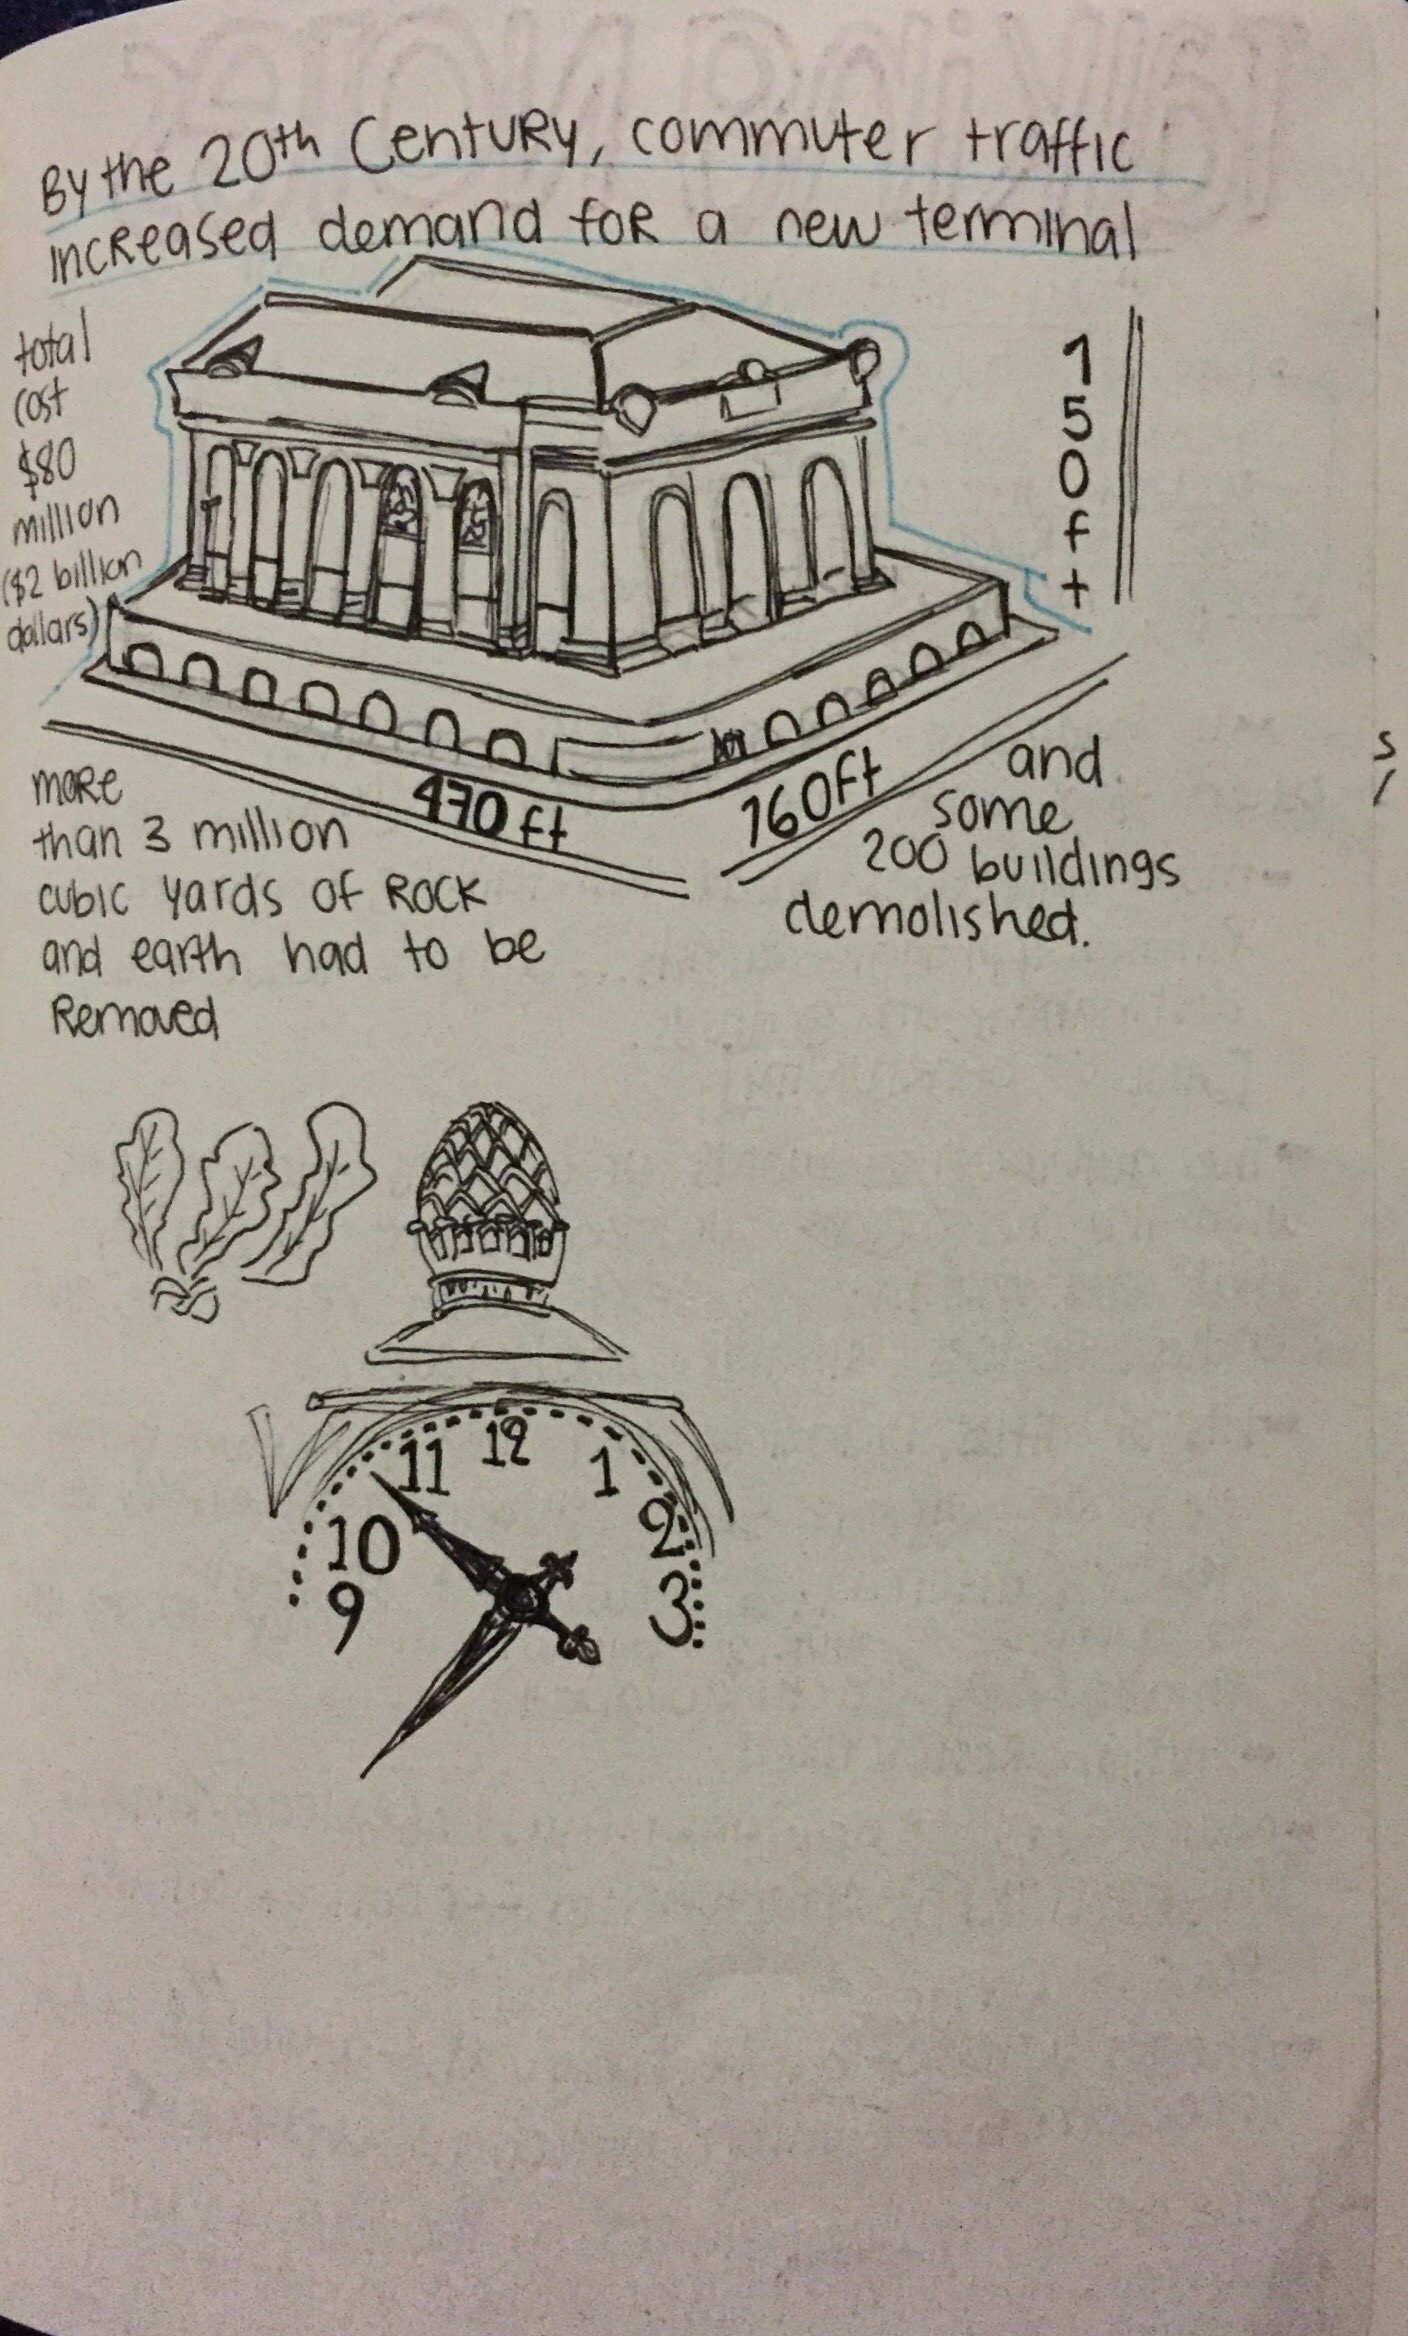 By the 20th Century, commuter traffic
increased demand for a new terminal
total
cost
$80
million
($2 billion
dollars)
1
5
0
f
t
470 ft
160ft
more
than 3 million
cubic yards of Rock
and earth had to be
Removed
and
some
200 buildings
demolished.
11 12 1
10 2
9 3